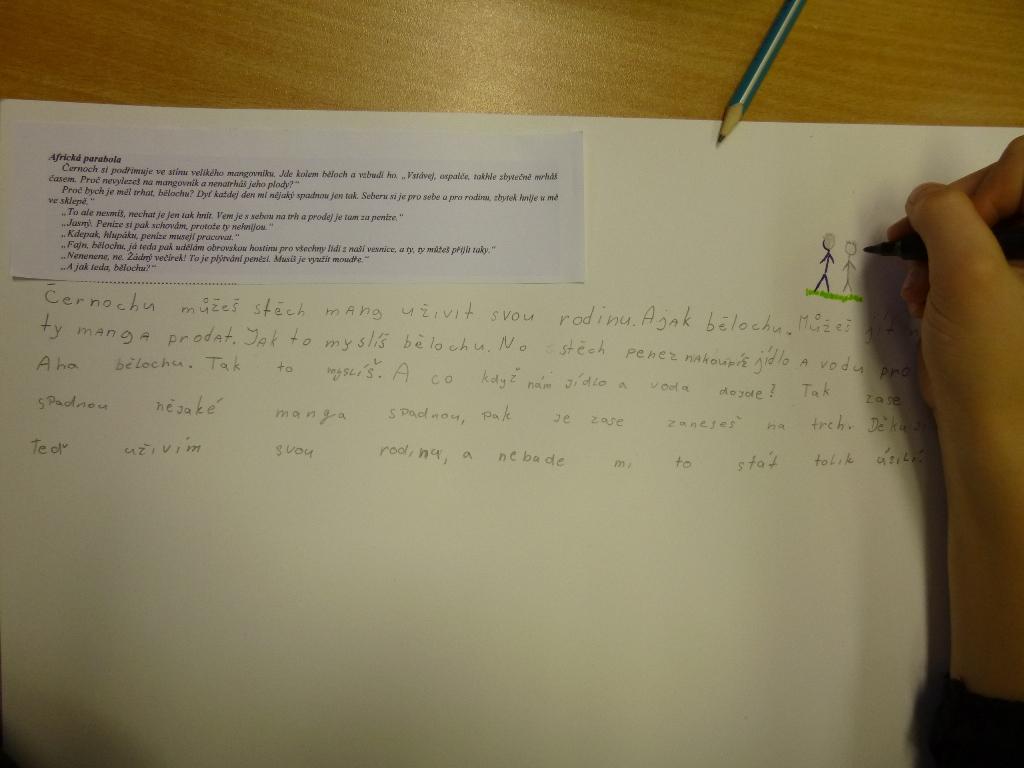 Africká parabola
Černoch si podřimuje ve stínu velikého mangovníku. Jde kolem běloch a vzbudí ho. „Vstávej, ospalče, takhle zbytečně mrháš
časem. Proč nevylezeš na mangovník a nenatrháš jeho plody?“
Proč bych je měl trhat, bělochu? Dyť každej den mi nějaký spadnou jen tak. Seberu si je pro sebe a pro rodinu, zbytek hnije u mě
ve sklepě.“
„To ale nesmíš, nechat je jen tak hnít. Vem je s sebou na trh a prodej je tam za peníze.“
„Jasný. Peníze si pak schovám, protože ty nehnijou.“
„Kdepak, hlupáku, peníze musejí pracovat.“
„Fajn, bělochu, já teda pak udělám obrovskou hostinu pro všechny lidi z naší vesnice, a ty, ty můžeš přijít taky.“
„Nenenene, ne. Žádný večírek! To je plýtvání penězi. Musíš je využít moudře.“
„A jak teda, bělochu?“
Černochu můžeš stěch mang uživit svou rodinu. Ajak bělochu. Můžeš jít
ty manga prodat. Jak to myslíš bělochu. No stěch penez nakoupíš jídlo a vodu pro
Aha bělochu. Tak to myslíš. A co když nám jídlo a voda dojde? Tak zase
spadnou nějaké manga spadnou, pak je zase zaneseš na trch.
Teď uživím svou rodinu, a nebade mi to stát tolik úsilí.